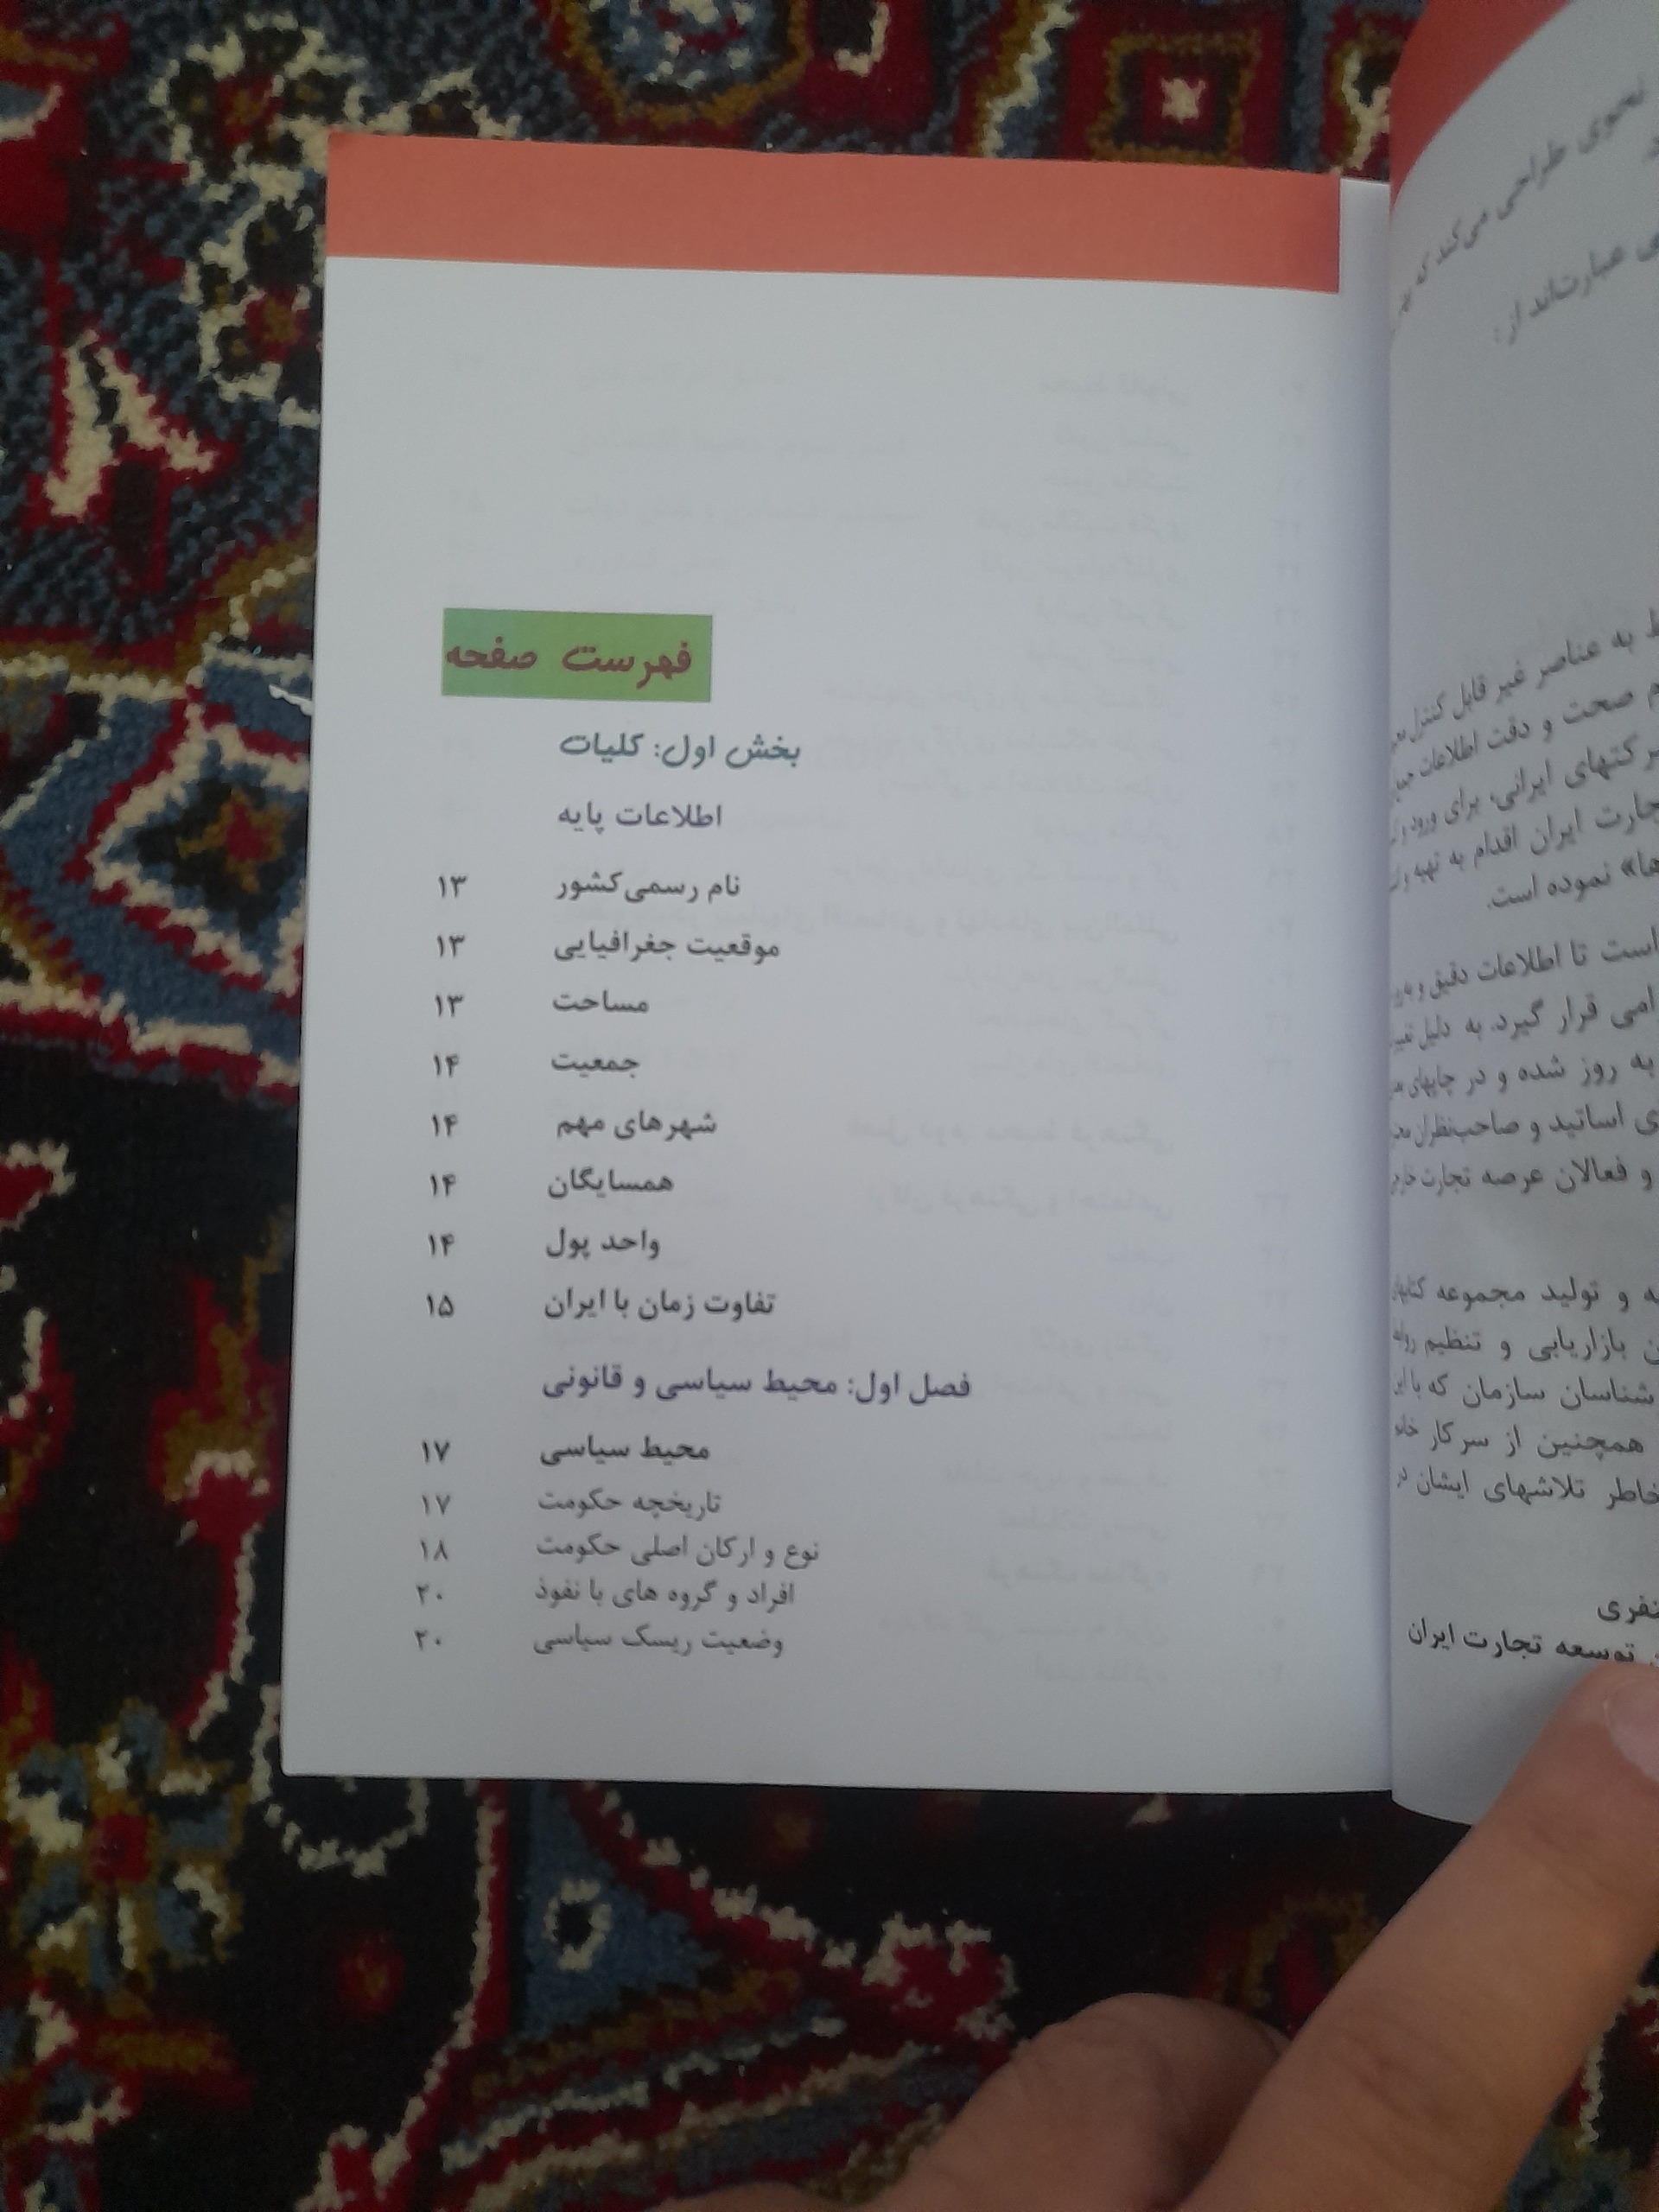 فهرست صفحه
بخش اول: کلیات
اطلاعات پایه
نام رسمی کشور ۱۳
موقعیت جغرافیایی ۱۳
مساحت ۱۳
جمعیت ۱۴
شهرهای مهم ۱۴
همسایگان ۱۴
واحد پول ۱۴
تفاوت زمان با ایران ۱۵
فصل اول: محیط سیاسی و قانونی
محیط سیاسی ۱۷
تاریخچه حکومت ۱۷
نوع و ارکان اصلی حکومت ۱۸
افراد و گروه های با نفوذ ۲۰
وضعیت ریسک سیاسی ۲۰
نحوی طراحی می‌کند که
عبارت‌اند از:
به عناصر غیر قابل کنترل
صحت و دقت اطلاعات
شرکتهای ایرانی، برای ورود
تجارت ایران اقدام به تهیه
ها» نموده است.
است تا اطلاعات دقیق و
قرار گیرد. به دلیل
به روز شده و در چاپهای
اساتید و صاحب‌نظران
و فعالان عرصه تجارت
و تولید مجموعه کتابهای
بازاریابی و تنظیم
شناسان سازمان که با این
همچنین از سرکار
خاطر تلاشهای ایشان در
توسعه تجارت ایران